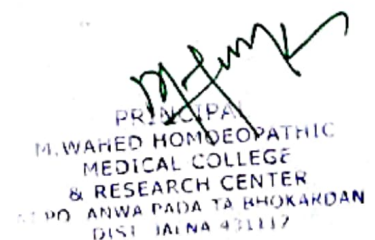 PRINCIPAL
M.WAHED HOMOEOPATHIC
MEDICAL COLLEGE
& RESEARCH CENTER
PO ANWA PADA TA BHOKARDAN
DIST JALNA 431112